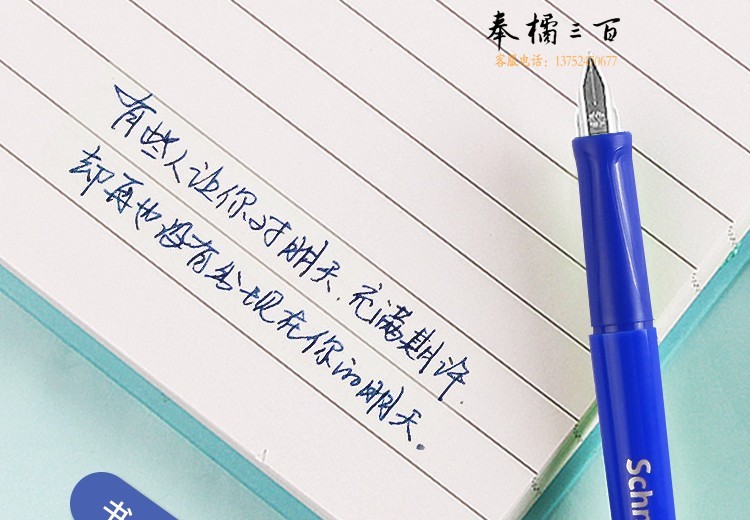 奉橘三百
客服电话：13752470677
有些人让你对明天.充满期许.
却再也没有出现在你的明天.
Schn
书